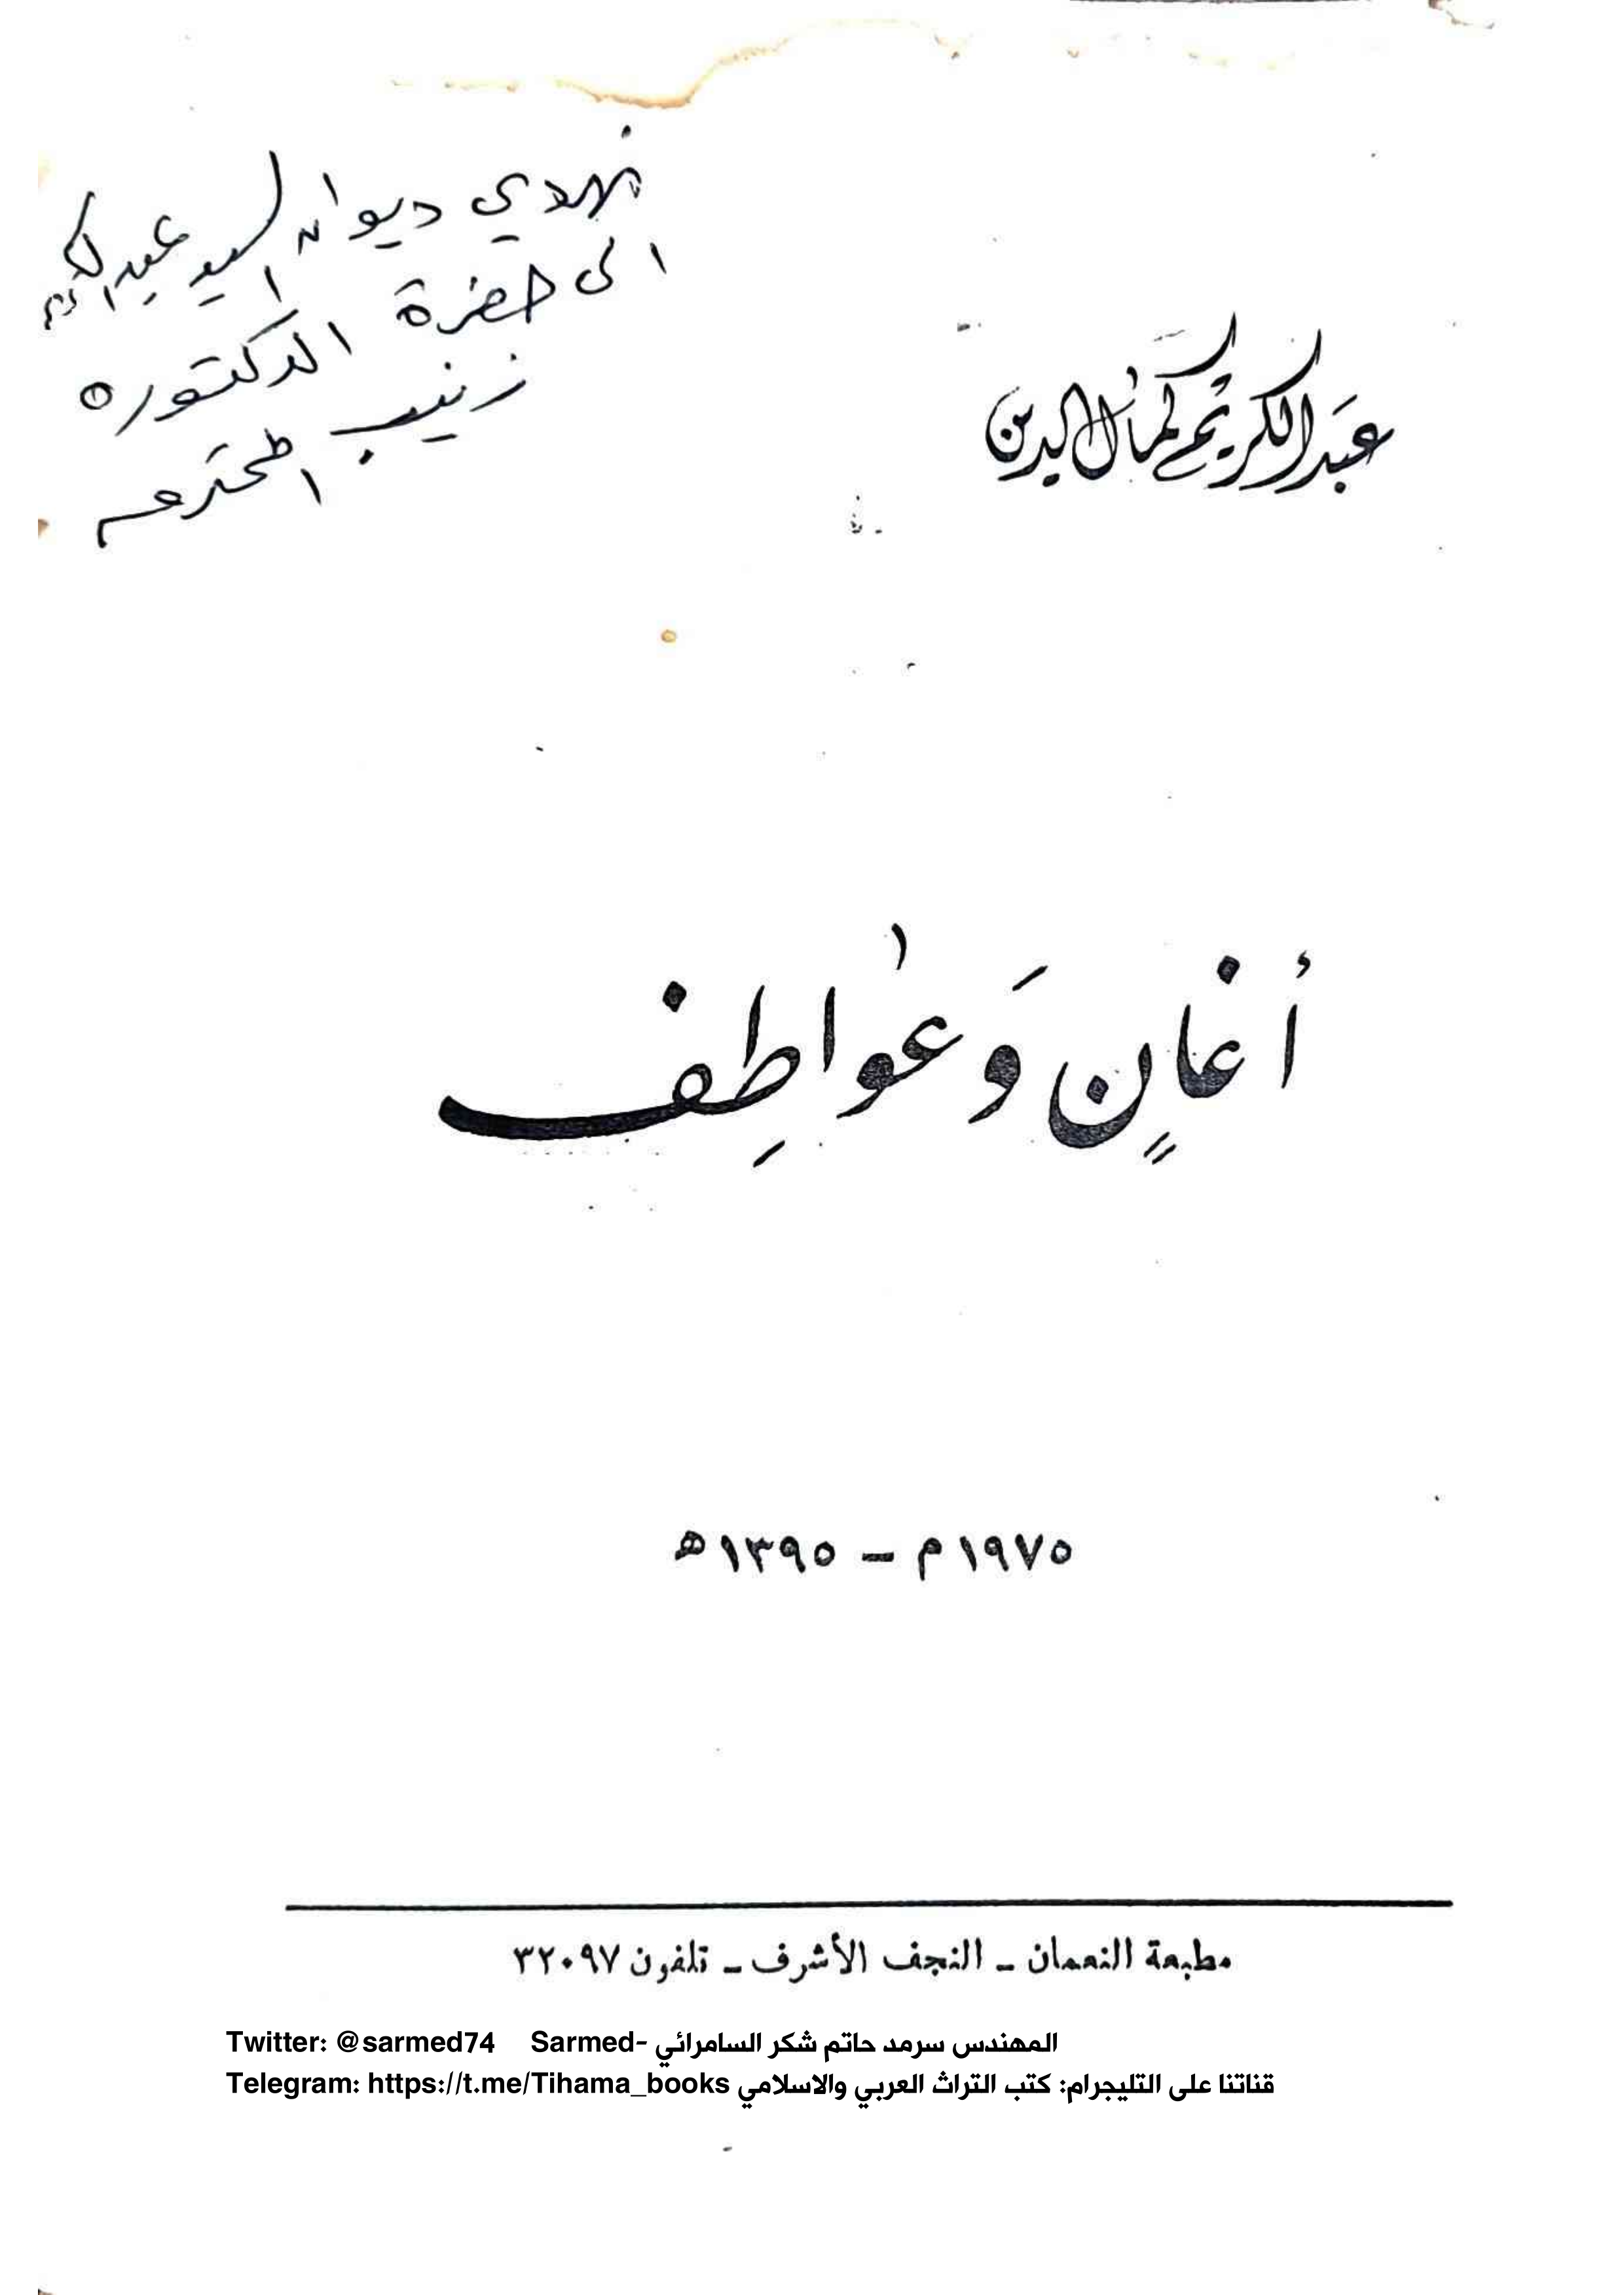 نهدي ديوان السيد عبد الكريم
الى حضرة الدكتوره
زينب المحترمه
عبد الكريم كمال الدين
أغانٍ وَعواطِف
١٩٧٥م - ١٣٩٥ھ
مطبعة النعمان - النجف الأشرف - تلفون ٣٢٠٩٧
Twitter: @sarmed74 Sarmed- المهندس سرمد حاتم شكر السامرائي
Telegram: https://t.me/Tihama_books قناتنا على التليجرام: كتب التراث العربي والاسلامي